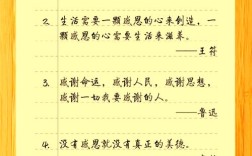 2. 生活需要一颗感恩的心来创造，一
颗感恩的心需要生活来滋养。
——王符
3. 感谢命运，感谢人民，感谢思想，
感谢一切我要感谢的人。
——鲁迅
4. 没有感恩就没有真正的美德。